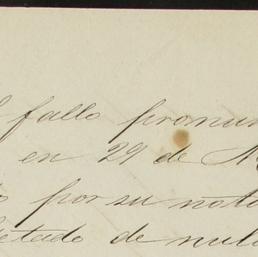 fallo pronun
en 29 de
por su nota
de nul